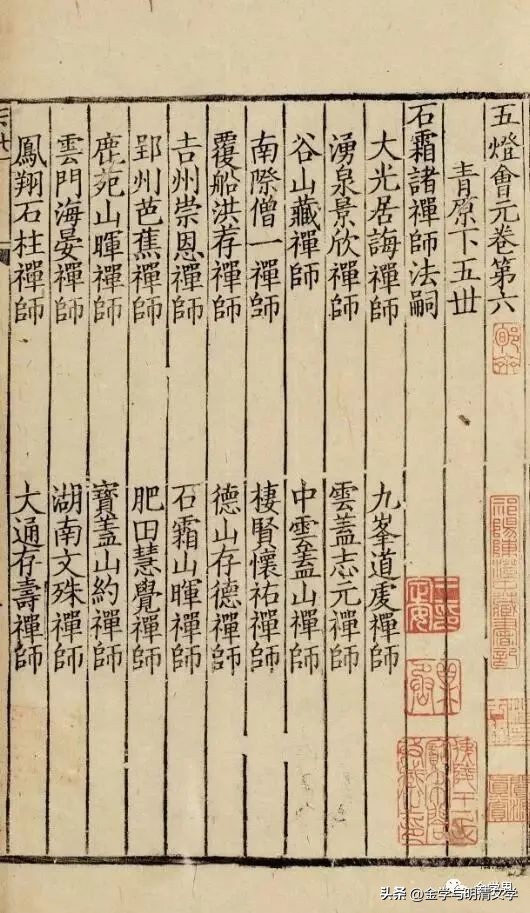 五燈會元卷第六
青原下五丗
石霜諸禪師法嗣
大光居誨禪師 九峯道虔禪師
湧泉景欣禪師 雲蓋志元禪師
谷山藏禪師 中雲蓋山禪師
南際僧一禪師 棲賢懷祐禪師
覆船洪荐禪師 德山存德禪師
吉州崇恩禪師 石霜山暉禪師
郢州芭蕉禪師 肥田慧覺禪師
鹿苑山暉禪師 寶蓋山約禪師
雲門海晏禪師 湖南文殊禪師
鳳翔石柱禪師 大通存壽禪師
祁陽陳澄中藏書記
头条 @金学与明清文学